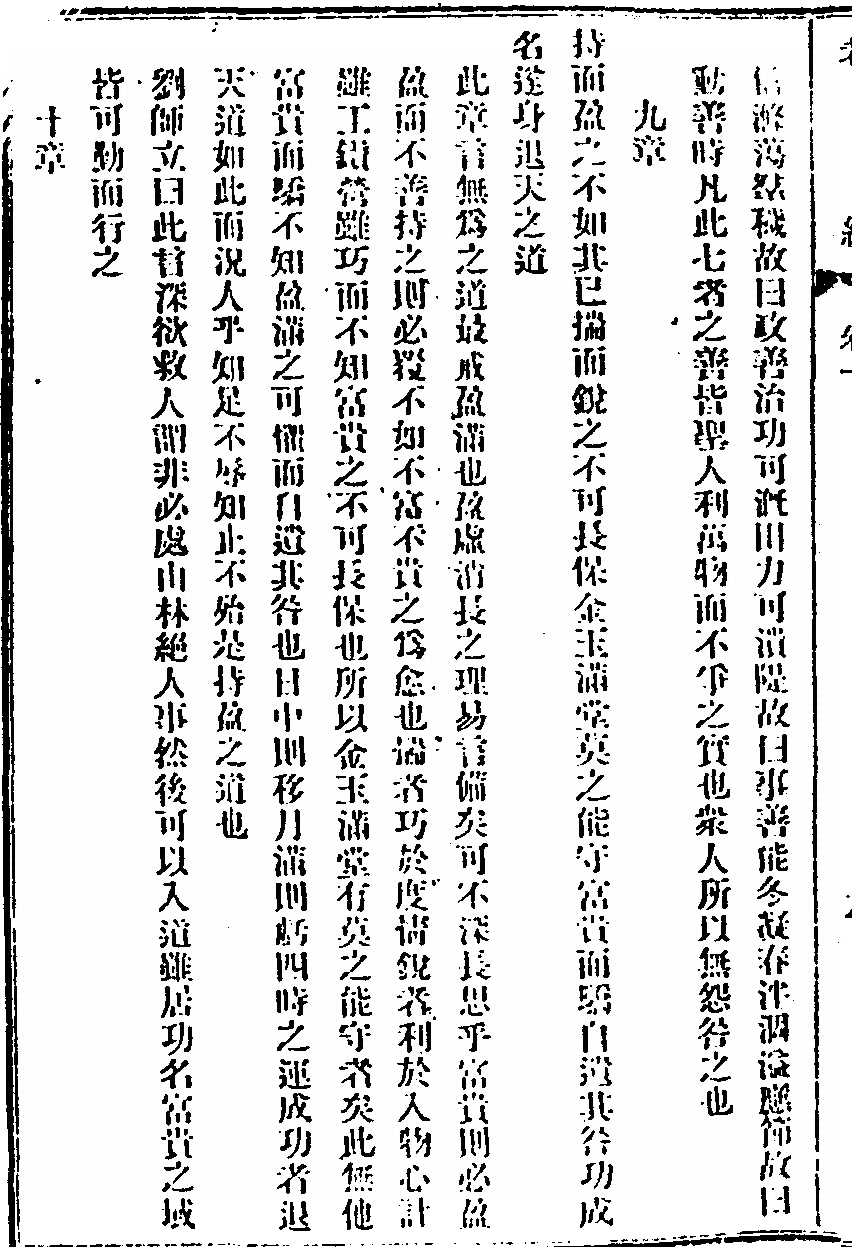 滌蕩羣穢故曰政善治功可漑田力可潰隄故曰事善能冬凝春泮涸溢應節故曰
動善時凡此七者之善皆聖人利萬物而不爭之實也衆人所以無怨咎之也
九章
持而盈之不如其已揣而銳之不可長保金玉滿堂莫之能守富貴而驕自遺其咎功成
名遂身退天之道
此章言無爲之道最戒盈滿也盈虛消長之理易言備矣可不深長思乎富貴則必盈
盈而不善持之則必殺不如不富不貴之爲愈也揣者巧於度情銳者利於入物心計
雖工鑽營雖巧而不知富貴之不可長保也所以金玉滿堂有莫之能守者矣此無他
富貴而驕不知盈滿之可懼而自遺其咎也日中則移月滿則虧四時之運成功者退
天道如此而況人乎知足不辱知止不殆是持盈之道也
劉師立曰此言深欲救人謂非必處山林絕人事然後可以入道雖居功名富貴之域
皆可勤而行之
十章